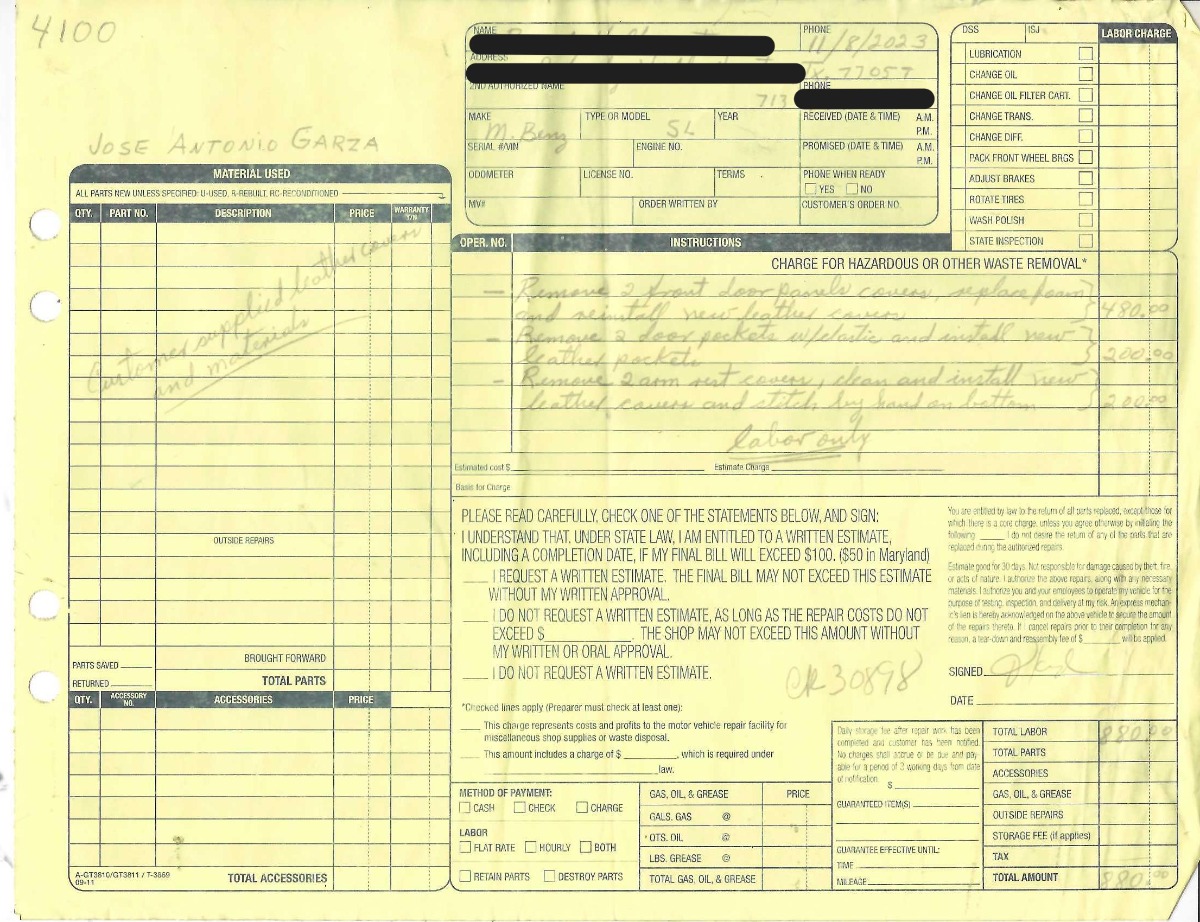 4100
JOSE ANTONIO GARZA
NAME
PHONE
11/8/2023
ADDRESS
Tx. 77057
2ND AUTHORIZED NAME
713
PHONE
MAKE
M. Benz
TYPE OR MODEL
SL
YEAR
RECEIVED (DATE & TIME) A.M.
P.M.
SERIAL #/VIN
ENGINE NO.
PROMISED (DATE & TIME) A.M.
P.M.
ODOMETER
LICENSE NO.
TERMS
PHONE WHEN READY
YES NO
MV#
ORDER WRITTEN BY
CUSTOMER'S ORDER NO.
DSS ISJ LABOR CHARGE
LUBRICATION
CHANGE OIL
CHANGE OIL FILTER CART.
CHANGE TRANS.
CHANGE DIFF.
PACK FRONT WHEEL BRGS
ADJUST BRAKES
ROTATE TIRES
WASH POLISH
STATE INSPECTION
MATERIAL USED
ALL PARTS NEW UNLESS SPECIFIED: U-USED, R-REBUILT, RC-RECONDITIONED
QTY. PART NO. DESCRIPTION PRICE WARRANTY Y/N
Customer supplied leather covers
and materials
OUTSIDE REPAIRS
PARTS SAVED
BROUGHT FORWARD
RETURNED
TOTAL PARTS
QTY. ACCESSORY NO. ACCESSORIES PRICE
TOTAL ACCESSORIES
A-GT3810/GT3811 / T-3869
09-11
OPER. NO. INSTRUCTIONS
CHARGE FOR HAZARDOUS OR OTHER WASTE REMOVAL*
— Remove 2 front door panels covers, replace foam
and reinstall new leather covers } 480.00
- Remove 2 door pockets w/elastic and install new
leather pockets } 200.00
- Remove 2 arm rest covers, clean and install new
leather covers and stitch by hand on bottom } 200.00
labor only
Estimated cost $ Estimate Charge
Basis for Charge
PLEASE READ CAREFULLY, CHECK ONE OF THE STATEMENTS BELOW, AND SIGN:
I UNDERSTAND THAT, UNDER STATE LAW, I AM ENTITLED TO A WRITTEN ESTIMATE,
INCLUDING A COMPLETION DATE, IF MY FINAL BILL WILL EXCEED $100. ($50 in Maryland)
I REQUEST A WRITTEN ESTIMATE. THE FINAL BILL MAY NOT EXCEED THIS ESTIMATE
WITHOUT MY WRITTEN APPROVAL.
I DO NOT REQUEST A WRITTEN ESTIMATE, AS LONG AS THE REPAIR COSTS DO NOT
EXCEED $ . THE SHOP MAY NOT EXCEED THIS AMOUNT WITHOUT
MY WRITTEN OR ORAL APPROVAL.
I DO NOT REQUEST A WRITTEN ESTIMATE.
CK 30898
You are entitled by law to the return of all parts replaced, except those for
which there is a core charge, unless you agree otherwise by initialing the
following I do not desire the return of any of the parts that are
replaced during the authorized repairs.
Estimate good for 30 days. Not responsible for damage caused by theft, fire,
or acts of nature. I authorize the above repairs, along with any necessary
materials. I authorize you and your employees to operate my vehicle for the
purpose of testing, inspection, and delivery at my risk. An express mechan-
ic's lien is hereby acknowledged on the above vehicle to secure the amount
of the repairs thereto. If I cancel repairs prior to their completion for any
reason, a tear-down and reassembly fee of $ will be applied.
SIGNED
DATE
*Checked lines apply (Preparer must check at least one):
This charge represents costs and profits to the motor vehicle repair facility for
miscellaneous shop supplies or waste disposal.
This amount includes a charge of $ , which is required under
law.
METHOD OF PAYMENT:
CASH CHECK CHARGE
LABOR
FLAT RATE HOURLY BOTH
RETAIN PARTS DESTROY PARTS
GAS, OIL, & GREASE PRICE
GALS. GAS @
QTS. OIL @
LBS. GREASE @
TOTAL GAS, OIL, & GREASE
Daily storage fee after repair work has been
completed and customer has been notified.
No charges shall accrue or be due and pay
able for a period of 3 working days from date
of notification.
$
GUARANTEED ITEM(S)
GUARANTEE EFFECTIVE UNTIL:
TIME
MILEAGE
TOTAL LABOR 880.00
TOTAL PARTS
ACCESSORIES
GAS, OIL, & GREASE
OUTSIDE REPAIRS
STORAGE FEE (if applies)
TAX
TOTAL AMOUNT 880.00